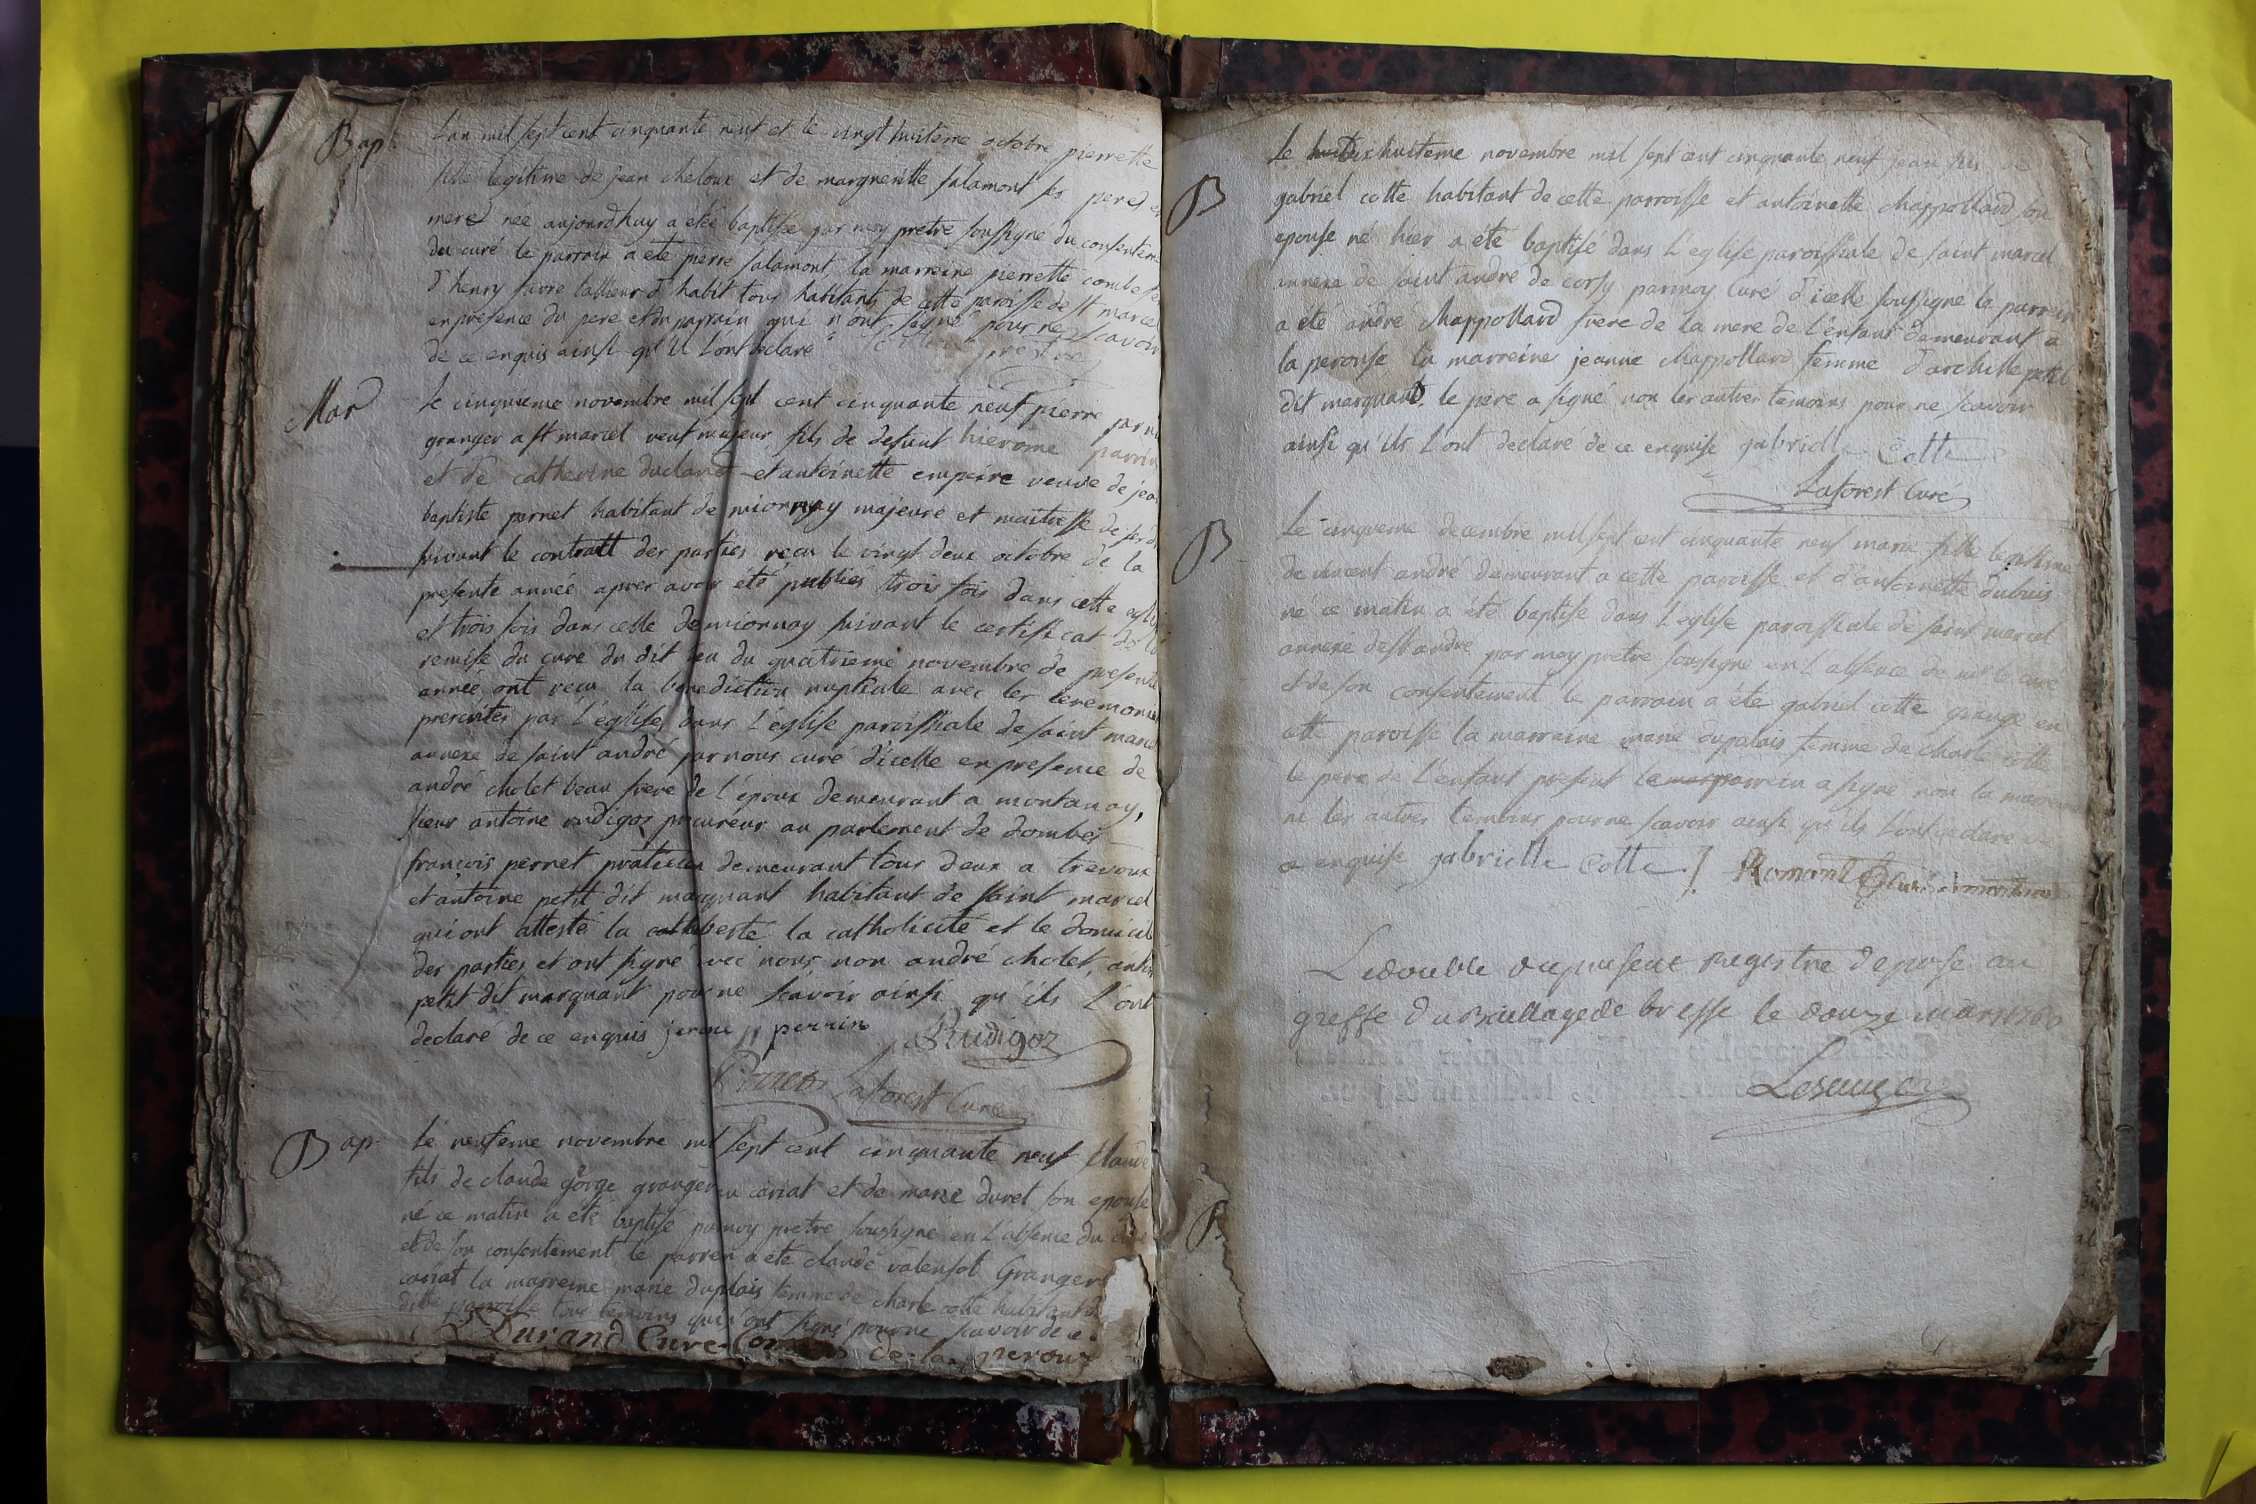 Bap.
Lan mil sept cent cinquante neuf et le vingt huiteme octobre pierrette
fille legitime de jean cheloux et de margueritte salamont ses peres et
meres née aujourdhuy a été baptisée par moy pretre soussigné du consenteme
du curé le parrain a eté pierre salamont, la marreine pierrette combe
d'henry favre tallieur d'habit tous habitants de cette paroisse de st marcel
en presence du pere et du parrain qui n'ont signé pour ne scavoir
de ce enquis ainsi qu'il l'ont declaré pretre
Mar
Le cinquieme novembre mil sept cent cinquante neuf pierre perrin
granger a st marcel veuf majeur fils de defunt hierome perrin
et de catherine duclare et antoinette empeire veuve de jean
baptiste pernet habitant de mionnay majeure et maitresse de ses d
suivant le contratt des parties reçu le vingt deux octobre de la
presente année apres avoir été publiés trois fois dans cette
et trois fois dans celle de mionnay suivant le certificat de
remise du curé du dit lieu du quatrieme novembre de presente
année ont reçu la benediction nuptiale avec les ceremonies
prescrites par l'église, dans l'eglise paroissiale de saint marcel
annexe de saint andré par nous curé d'icelle en presence de
andré cholet beau frere de l'époux demeurant a montanay,
sieur antoine rudigoz procureur au parlement de dombes
françois pernet praticien demeurant tous deux a trevoux
et antoine petit dit marquant habitant de saint marcel
qui ont attesté la liberté la catholicité et le domicile
des parties et ont signé avec nous non andré cholet, antoi
petit dit marquant pour ne scavoir ainsi qu'ils l'ont
declaré de ce enquis jerome perrin Rudigoz
Pernet Laforest Curé
Bap.
Le neufieme novembre mil sept cent cinquante neuf claude
fils de claude görge granger en coriat et de marie duret son epouse
né ce matin a eté baptisé par moy pretre soussigné en l'absence du curé
et de son consentement le parren a eté claude valensot Granger
coriat la marreine marie duplais femme de charle cotte habitant d
ditte paroisse tous temoins qui n'ont signé pour ne scavoir de ce
Durand Curé de la perouze
B
Le dixhuiteme novembre mil sept cent cinquante neuf jean fils de
gabriel cotte habitant de cette parroisse et antoinette chappollard son
epouse né hier a eté baptisé dans l'eglise paroissiale de saint marcel
annexe de saint andré de corsy par moy curé d'icelle soussigné le parrein
a eté andré chappollard frere de la mere de l'enfant demeurant a
la perouse la marreine jeanne chappollard femme d'archille petit
dit marquant, le père a signé non les autres temoins pour ne scavoir
ainsi qu'ils l'ont declaré de ce enquise gabrielle Cotte
Laforest Curé
B
Le cinqueme decembre mil sept cent cinquante neuf marie fille legitime
de vincent andré demeurant a cette paroisse et d'antoinette dubuis
né ce matin a eté baptisé dans l'eglise paroissiale de saint marcel
annexe de st andré par moy pretre soussigné en l'absence de mr le curé
et de son consentement le parrain a été gabriel cotte granger en
cette paroisse la marraine marie dupalais femme de charle cotte
le pere de l'enfant present le parrein a signé non la marreine
ni les autres temoins pour ne scavoir ainsi qu'ils l'ont declaré de
ce enquise gabrielle cotte Romand Curé
Ledouble du present registre deposé au
greffe du Baillage de bresse le douze mars 1760
B